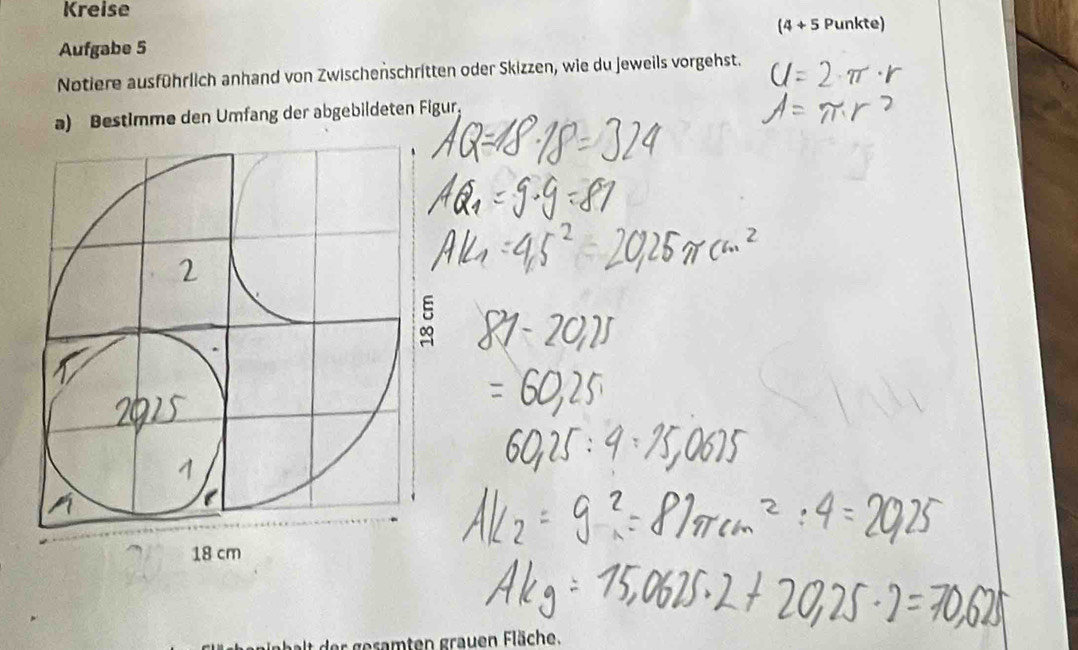 Kreise
(4 + 5 Punkte)
Aufgabe 5
Notiere ausführlich anhand von Zwischenschritten oder Skizzen, wie du jeweils vorgehst.
U = 2·π·r
a) Bestimme den Umfang der abgebildeten Figur.
A = π·r²
AQ = 18·18 = 324
AQ₁ = 9·9 = 81
AK₁ = 4,5² = 20,25 π cm²
2
18 cm
81 - 20,25
= 60,25
2025
60,25 : 4 = 15,0625
1
1
AK₂ = 9² = 81π cm² : 4 = 20,25
18 cm
AKg = 15,0625·2 + 20,25·2 = 70,625
der gesamten grauen Fläche.